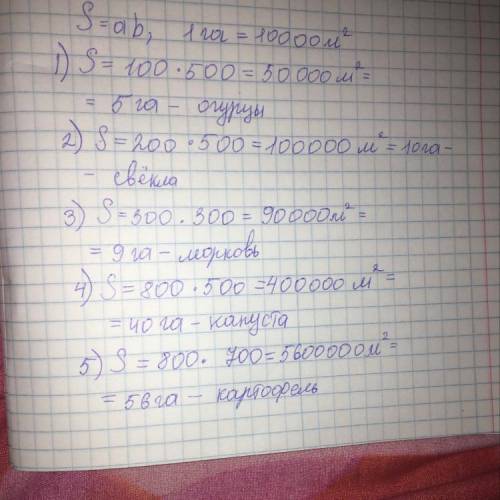 S=ab, 1га=10000м²
1) S=100·500=50000м²=
=5га- огурцы
2) S=200·500=100000м²=10га-
- свёкла
3) S=300·300=90000м²=
=9га-морковь
4) S=800·500=400000м²=
=40га-капуста
5) S=800·700=5600000м²=
=56га-картофель